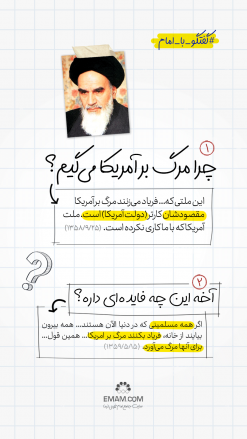 #گفتگو_با_امام
۱
چرا مرگ بر آمریکا می‌گیم؟
این ملتی که... فریاد می‌زنند مرگ بر آمریکا
مقصودشان کارتر (دولت آمریکا) است، ملت
آمریکا که با ما کاری نکرده است. (۱۳۵۸/۹/۲۵)
۲
آخه این چه فایده‌ای داره؟
اگر همه مسلمینی که در دنیا الآن هستند... همه بیرون
بیایند از خانه، فریاد بکنند مرگ بر امریکا... همین قول...
برای آنها مرگ می‌آورد. (۱۳۵۹/۵/۱۵)
EMAM.COM